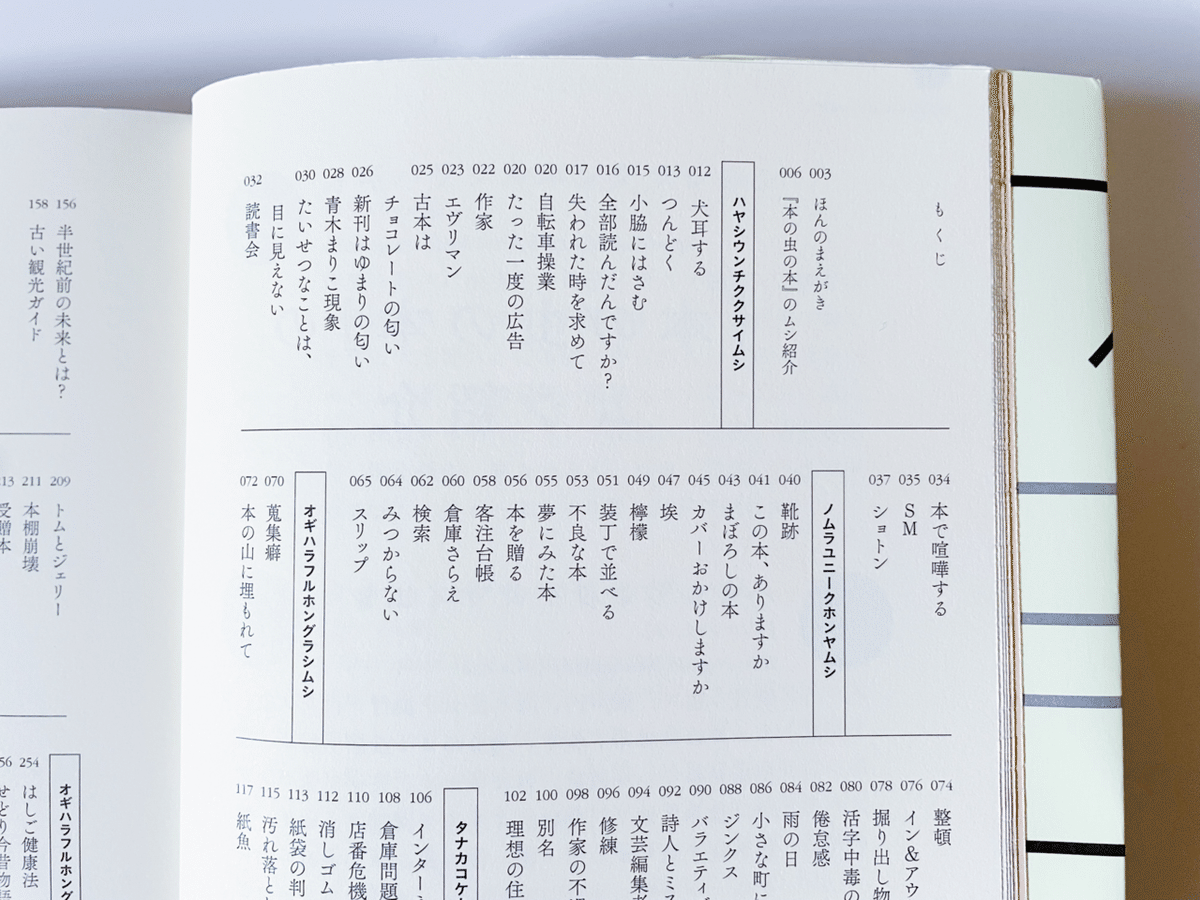 もくじ
003 ほんのまえがき
006 『本の虫の本』のムシ紹介
ハヤシウンチククサイムシ
012 犬耳する
013 つんどく
015 小脇にはさむ
016 全部読んだんですか?
017 失われた時を求めて
020 自転車操業
020 たった一度の広告
022 作家
023 エヴリマン
025 古本は
チョコレートの匂い
026 新刊はゆまりの匂い
028 青木まりこ現象
030 たいせつなことは、
目に見えない
032 読書会
034 本で喧嘩する
035 SM
037 ション
ノムラユニークホンヤムシ
040 靴跡
041 この本、ありますか
043 まぼろしの本
045 カバーおかけしますか
047 埃
049 檸檬
051 装丁で並べる
053 不良な本
055 夢にみた本
056 本を贈る
058 客注台帳
060 倉庫さらえ
062 検索
064 みつからない
065 スリップ
オギハラフルホングラシムシ
070 蒐集癖
072 本の山に埋もれて
074 整頓
076 イン&アウ
078 掘り出し物
080 活字中毒の
082 倦怠感
084 雨の日
086 小さな町に
088 ジンクス
090 バラエティ
092 詩人とミス
094 文芸編集者
096 修練
098 作家の不
100 別名
102 理想の住
タナカコケ
106 インター
108 倉庫問題
110 店番危機
112 消しゴム
113 紙袋の判
115 汚れ落と
117 紙魚
156 半世紀前の未来とは?
158 古い観光ガイド
209 トムとジェリー
211 本棚崩壊
213 受贈本
オギハラフルホング
254 はしご健康法
256 せどり今昔物語